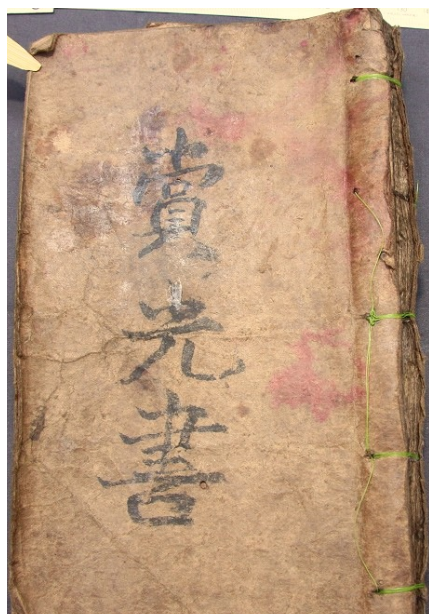 賞光書